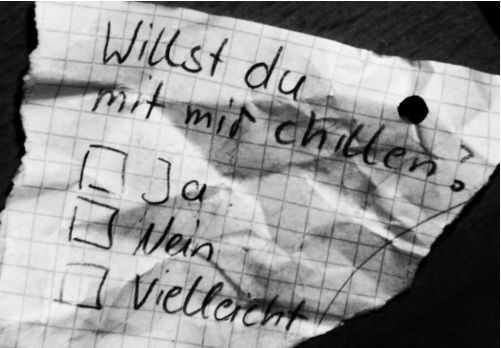 Willst du
mit mir chillen?
Ja
Nein
Vielleicht